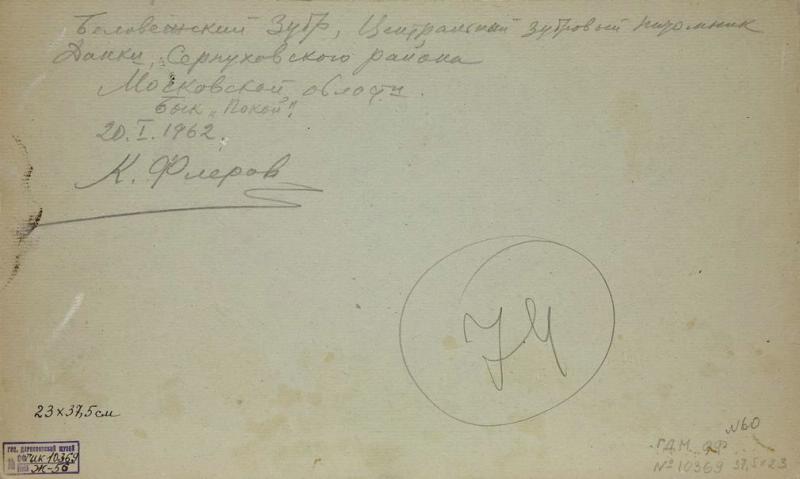 Беловежский Зубр, Центральный зубровый питомник
Данки, Серпуховского района
Московской области.
Бык „Покой".
20.I.1962.
К. Флеров
74
23х37,5см
ГОС. ДАРВИНОВСКИЙ МУЗЕЙ
ИК 10369
Ж-56
№60
ГДМ
№10369 37,5х23